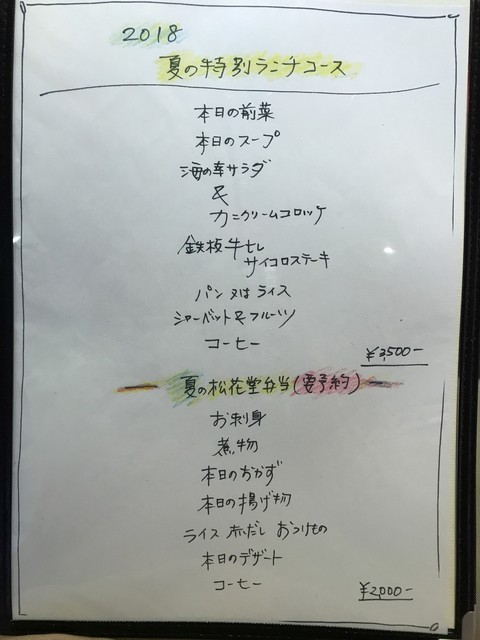 2018
夏の特別ランチコース
本日の前菜
本日のスープ
海の幸サラダ
&
カニクリームコロッケ
鉄板牛ヒレ
サイコロステーキ
パン又はライス
シャーベット&フルーツ
コーヒー
¥3,500-
夏の松花堂弁当(要予約)
お刺身
煮物
本日のおかず
本日の揚げ物
ライス 赤だし おつけもの
本日のデザート
コーヒー
¥2,000-